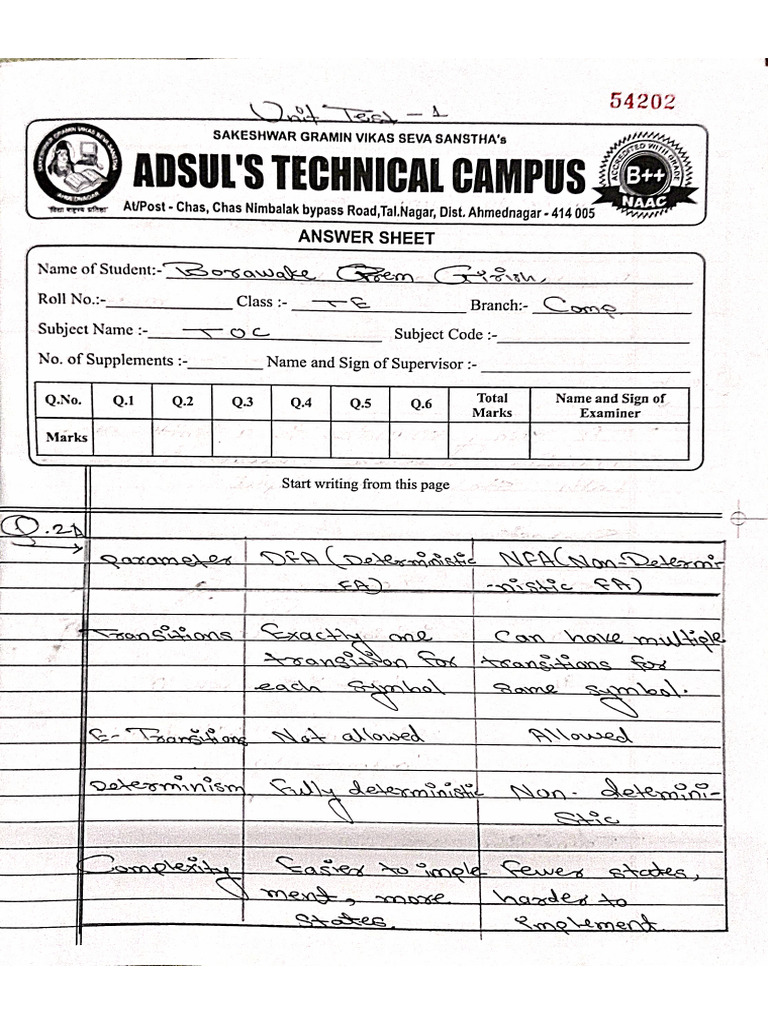 Unit Test - 1
54202
SAKESHWAR GRAMIN VIKAS SEVA SANSTHA's
ADSUL'S TECHNICAL CAMPUS
At/Post - Chas, Chas Nimbalak bypass Road,Tal.Nagar, Dist. Ahmednagar - 414 005
SAKESHWAR GRAMIN VIKAS SEVA SANSTHA
AHMEDNAGAR
ACCREDITED WITH GRADE
B++
NAAC
ANSWER SHEET
Name of Student:- Borawake Prem Girish
Roll No.:- Class :- TE Branch:- Comp
Subject Name :- TOC Subject Code :-
No. of Supplements :- Name and Sign of Supervisor :-
Q.No. Q.1 Q.2 Q.3 Q.4 Q.5 Q.6 Total Marks Name and Sign of Examiner
Marks
Start writing from this page
Q.2A
Parameter DFA (Deterministic NFA (Non-Determi-
FA) -nistic FA)
Transitions Exactly one Can have multiple
transition for transitions for
each symbol same symbol.
E- Transitions Not allowed Allowed
Determinism Fully deterministic Non- determini-
stic
Complexity Easier to imple- Fewer states,
ment, more harder to
states. implement.